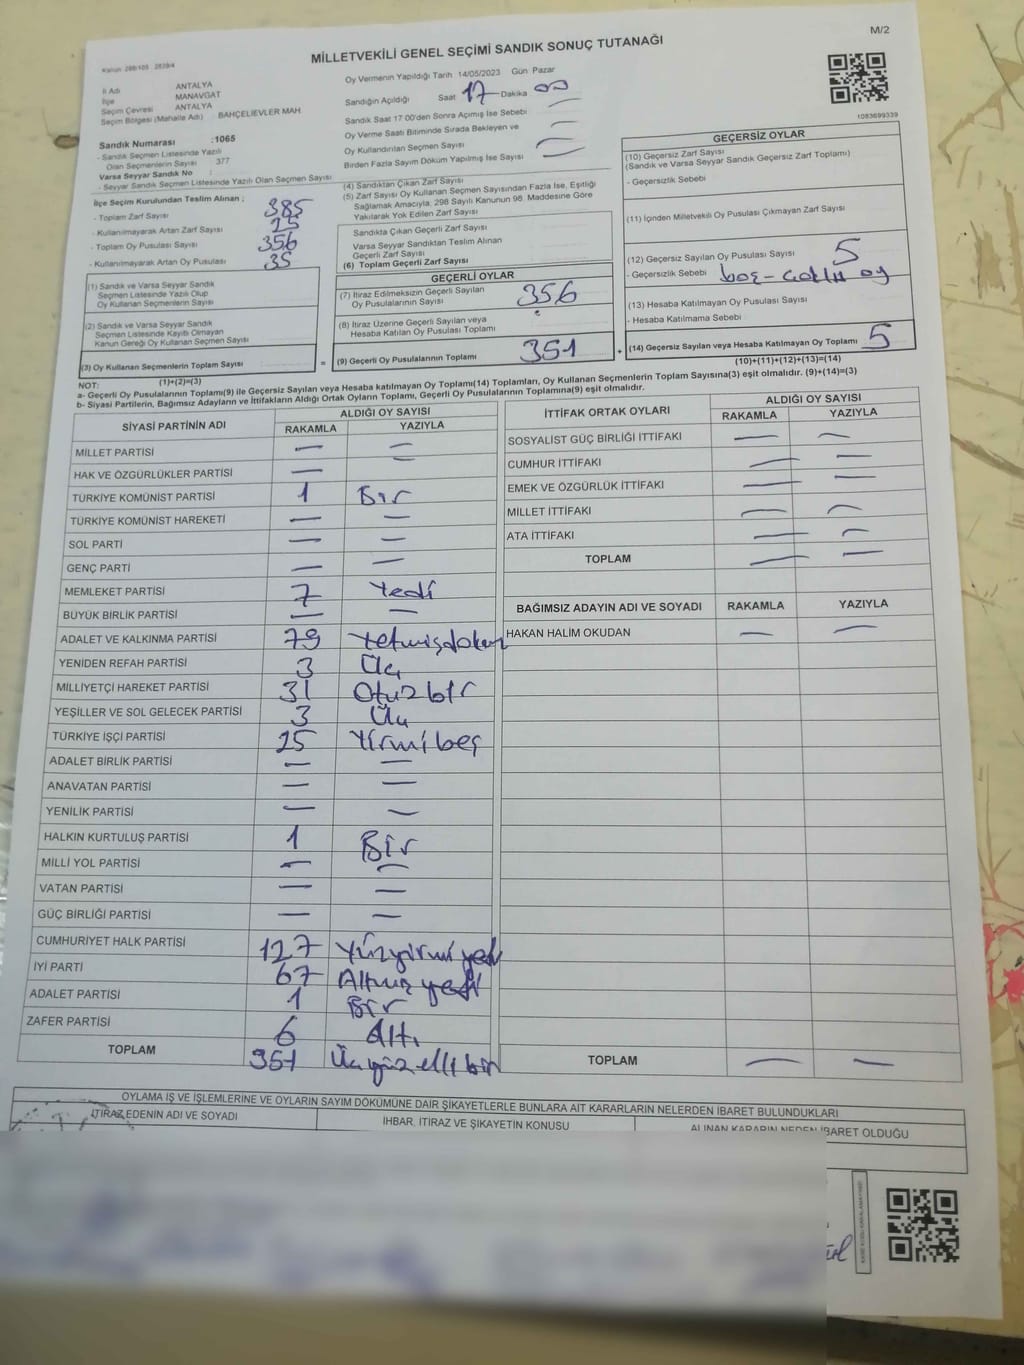 M/2
MİLLETVEKİLİ GENEL SEÇİMİ SANDIK SONUÇ TUTANAĞI
İl Adı ANTALYA
İlçe MANAVGAT
Seçim Çevresi ANTALYA
Seçim Bölgesi (Mahalle Adı) BAHÇELİEVLER MAH
Sandık Numarası :1065
- Sandık Seçmen Listesinde Yazılı
Olan Seçmenlerin Sayısı 377
Varsa Seyyar Sandık No :
- Seyyar Sandık Seçmen Listesinde Yazılı Olan Seçmen Sayısı
Oy Vermenin Yapıldığı Tarih 14/05/2023 Gün Pazar
Sandığın Açıldığı Saat 17 Dakika 00
Sandık Saat 17 00'den Sonra Açımış İse Sebebi —
Oy Verme Saati Bitiminde Sırada Bekleyen ve
Oy Kullandırılan Seçmen Sayısı —
Birden Fazla Sayım Döküm Yapılmış İse Sayısı —
1083699339
İlçe Seçim Kurulundan Teslim Alınan ;
- Toplam Zarf Sayısı 385
- Kullanılmayarak Artan Zarf Sayısı 25
- Toplam Oy Pusulası Sayısı 356
- Kullanılmayarak Artan Oy Pusulası 35
(1) Sandık ve Varsa Seyyar Sandık
Seçmen Listesinde Yazılı Olup
Oy Kullanan Seçmenlerin Sayısı
(2) Sandık ve Varsa Seyyar Sandık
Seçmen Listesinde Kayıtlı Olmayan
Kanun Gereği Oy Kullanan Seçmen Sayısı
(3) Oy Kullanan Seçmenlerin Toplam Sayısı
(1)+(2)=(3)
(4) Sandıktan Çıkan Zarf Sayısı
(5) Zarf Sayısı Oy Kullanan Seçmen Sayısından Fazla İse, Eşitliği
Sağlamak Amacıyla; 298 Sayılı Kanunun 98. Maddesine Göre
Yakılarak Yok Edilen Zarf Sayısı
Sandıkta Çıkan Geçerli Zarf Sayısı
Varsa Seyyar Sandıktan Teslim Alınan
Geçerli Zarf Sayısı
(6) Toplam Geçerli Zarf Sayısı
GEÇERLİ OYLAR
(7) İtiraz Edilmeksizin Geçerli Sayılan
Oy Pusulalarının Sayısı 356
(8) İtiraz Üzerine Geçerli Sayılan veya
Hesaba Katılan Oy Pusulası Toplamı
= (9) Geçerli Oy Pusulalarının Toplamı 351 +
GEÇERSİZ OYLAR
(10) Geçersiz Zarf Sayısı
(Sandık ve Varsa Seyyar Sandık Geçersiz Zarf Toplamı)
- Geçersizlik Sebebi
(11) İçinden Milletvekili Oy Pusulası Çıkmayan Zarf Sayısı
(12) Geçersiz Sayılan Oy Pusulası Sayısı 5
- Geçersizlik Sebebi boş - çoklu oy
(13) Hesaba Katılmayan Oy Pusulası Sayısı
- Hesaba Katılmama Sebebi
(14) Geçersiz Sayılan veya Hesaba Katılmayan Oy Toplamı 5
(10)+(11)+(12)+(13)=(14)
NOT:
a- Geçerli Oy Pusulalarının Toplamı(9) ile Geçersiz Sayılan veya Hesaba katılmayan Oy Toplamı(14) Toplamları, Oy Kullanan Seçmenlerin Toplam Sayısına(3) eşit olmalıdır. (9)+(14)=(3)
b- Siyasi Partilerin, Bağımsız Adayların ve İttifakların Aldığı Ortak Oyların Toplamı, Geçerli Oy Pusulalarının Toplamına(9) eşit olmalıdır.
SİYASİ PARTİNİN ADI ALDIĞI OY SAYISI
RAKAMLA YAZIYLA
MİLLET PARTİSİ — —
HAK VE ÖZGÜRLÜKLER PARTİSİ — —
TÜRKİYE KOMÜNİST PARTİSİ 1 Bir
TÜRKİYE KOMÜNİST HAREKETİ — —
SOL PARTİ — —
GENÇ PARTİ — —
MEMLEKET PARTİSİ 7 Yedi
BÜYÜK BİRLİK PARTİSİ — —
ADALET VE KALKINMA PARTİSİ 79 Yetmişdokuz
YENİDEN REFAH PARTİSİ 3 Üç
MİLLİYETÇİ HAREKET PARTİSİ 31 Otuzbir
YEŞİLLER VE SOL GELECEK PARTİSİ 3 Üç
TÜRKİYE İŞÇİ PARTİSİ 25 Yirmibeş
ADALET BİRLİK PARTİSİ — —
ANAVATAN PARTİSİ — —
YENİLİK PARTİSİ — —
HALKIN KURTULUŞ PARTİSİ 1 Bir
MİLLİ YOL PARTİSİ — —
VATAN PARTİSİ — —
GÜÇ BİRLİĞİ PARTİSİ — —
CUMHURİYET HALK PARTİSİ 127 Yüzyirmi yedi
İYİ PARTİ 67 Altmış yedi
ADALET PARTİSİ 1 Bir
ZAFER PARTİSİ 6 Altı
TOPLAM 351 Üçyüz elli bir
İTTİFAK ORTAK OYLARI ALDIĞI OY SAYISI
RAKAMLA YAZIYLA
SOSYALİST GÜÇ BİRLİĞİ İTTİFAKI — —
CUMHUR İTTİFAKI — —
EMEK VE ÖZGÜRLÜK İTTİFAKI — —
MİLLET İTTİFAKI — —
ATA İTTİFAKI — —
TOPLAM — —
BAĞIMSIZ ADAYIN ADI VE SOYADI RAKAMLA YAZIYLA
HAKAN HALİM OKUDAN — —
TOPLAM — —
OYLAMA İŞ VE İŞLEMLERİNE VE OYLARIN SAYIM DÖKÜMÜNE DAİR ŞİKAYETLERLE BUNLARA AİT KARARLARIN NELERDEN İBARET BULUNDUKLARI
İTİRAZ EDENİN ADI VE SOYADI İHBAR, İTİRAZ VE ŞİKAYETİN KONUSU ALINAN KARARIN NEDEN İBARET OLDUĞU